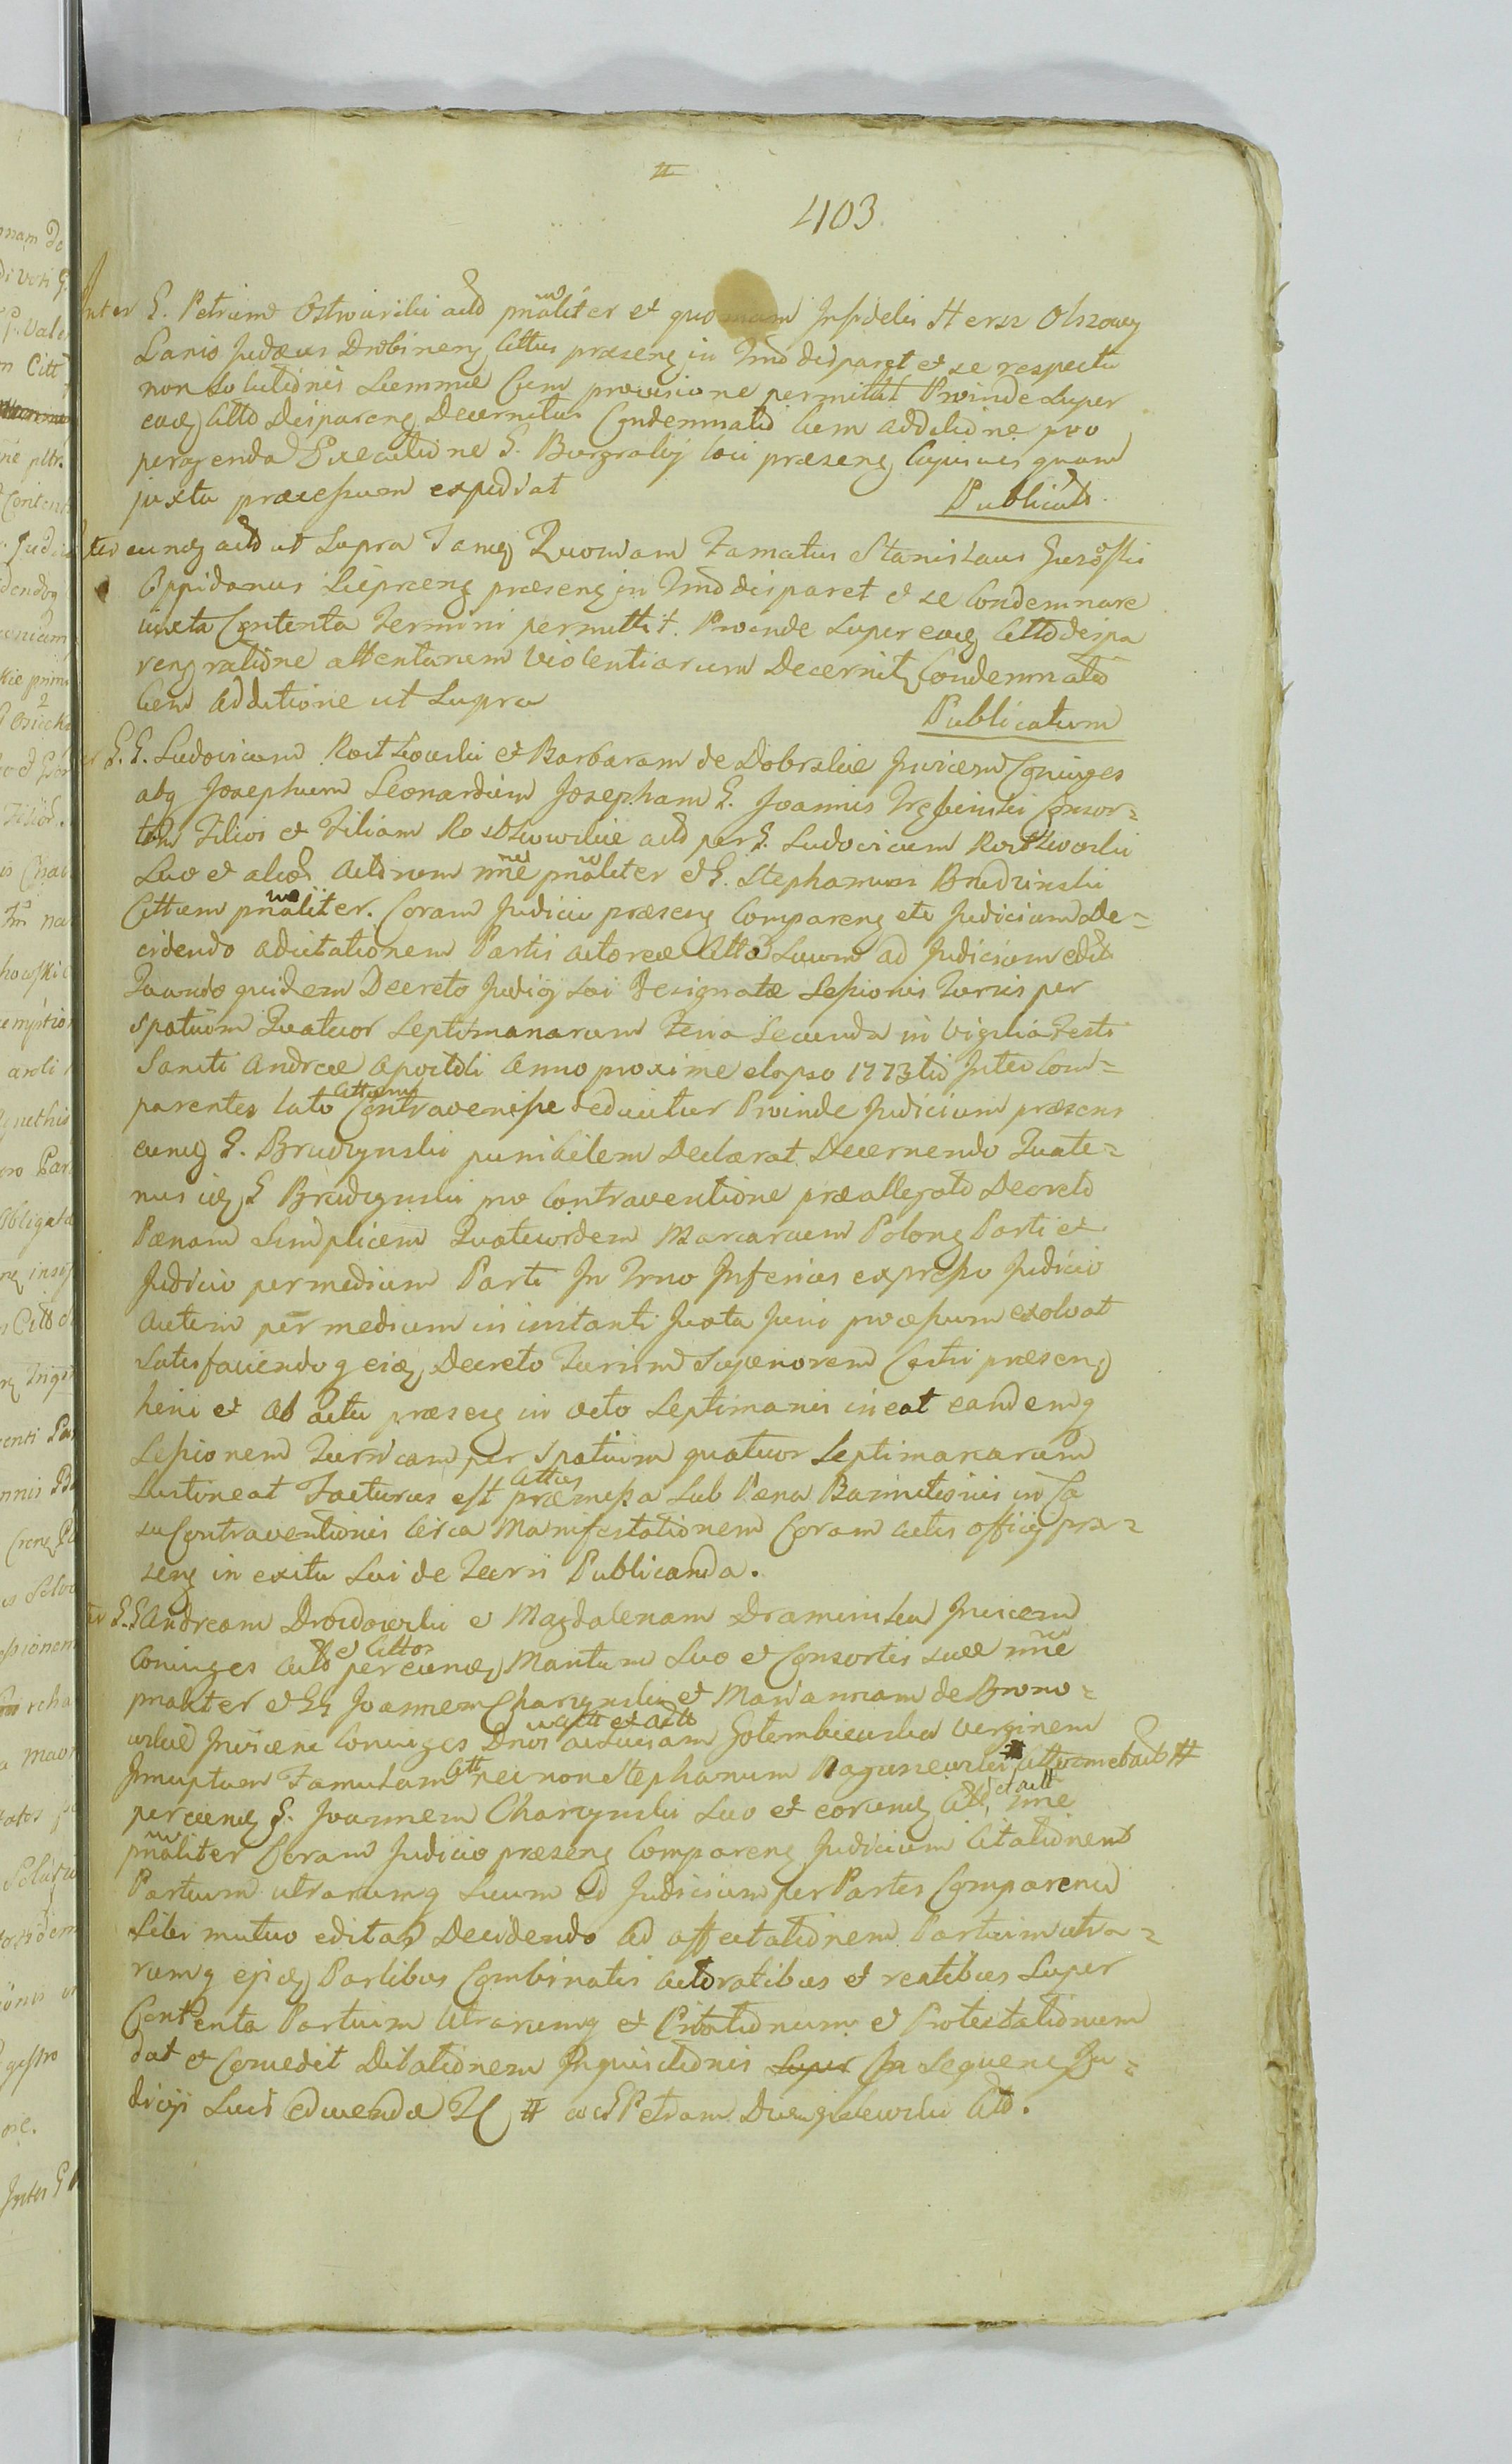 #
403.
Inter G. Petrum Ostwirski acto pnaliter et quoniam Infidelis Hersz
Lanio Judæus Drobinens Cittus præsens in Tmo disparet et se respectu
non solutionis Summæ Cum provisione permittit Proinde Super
eund Citto disparens Decernitur Condemnatio Cum additione pro
peragenda Executione G. Burgrabij loci præsens quam
juxta processum expediat Publicat.
Inter eunq acto ut Supra Tanq Quoniam Famatus Stanislaus
Oppidanus præsens in Tmo disparet et se Condemnare
iuxta Contenta Termini permittit. Proinde Super eund Citto dispa
rens ratione attentarum Violentiarum Decernit Condemnatio
Cum Additione ut Supra Publicatum
Inter G.G. Ludovicum Rostkowski et Barbaram de Dobrskie Invicem Coniuges
atq Josephum Leonardum Josepham G. Joannis Consor=
tem Filios et Filiam Rostkowskie acto per G. Ludovicum Rostkowski
Suo et alior Actorum nne pnaliter et G. Stephanum Brudzinski
Cittum pnaliter. Coram Judicio præsens Comparens ete Judicium De=
cidendo adcitationem Partis actoreæ Citto Suum ad Judicium edit
Quando quidem Decreto Judicij sui designatæ Sessionis Turris per
spatium Quatuor Septimanarum Feria Secunda in Vigilia Festi
Sancti Andreæ Apostoli Anno proxime elapso 1773tio Inter Com=
parentes lato Cittum Contravenisse deducitur Proinde Judicium præsens
eunq G. Brudzynski punibilem Declarat Decernendo Quate=
nus idq G Brudzynski pro Contraventione præallegato Decreto
Pœnam Simplicem Quatuordem Marcarum Polons Parti et
Judicio per medium Parti In Tmo Inferius expresso Judicio
Autem per medium in instanti Juxta Juris processum exolvat
Satisfaciendoq eidq Decreto Turrim Superiorem Castri præsens
hinc et ab actu præsens in octo Septimanis ineat eandemq
Sessionem Turricam per Spatium quatuor Septimanarum
Sustineat Facturus est Cittus præmissa Sub Pœna Bannitionis in Ca
su Contraventionis Circa Manifestationem Coram Actis officij præ=
sens in exitu Sui de Turri Publicanda.
Inter G.G Andream Drozdowski et Magdalenam Invicem
Coniuges acto et Cittos per eundq Maritum Suo et Consortis suæ nne
pnaliter et GG Joannem Charzynski et Mariannam de Brono=
wskie Invicem Coniuges Dnos ac Luciam Gotembiewska Virginem
Innuptam Famulam Citt nec non Stephanum #
per eunq G. Joannem Charzynski Suo et eorunq Citt, et actt nne
pnaliter Coram Judicio præsens Comparens Judicium Citationem
Partium utrarumq Suum ad Judicium per Partes Comparend
Sibi mutuo editas Decidendo ad affectationem Partium utra=
rumq Partibus Combinatis Actoratibus et reatibus Super
Contenta Partium Utrarumq et Citationum et Protestationum
dat et Concedit Dilationem Inquisitionis Super In Sequens Ju=
dicijs Suis educendæ # ac G Petrum Citto.